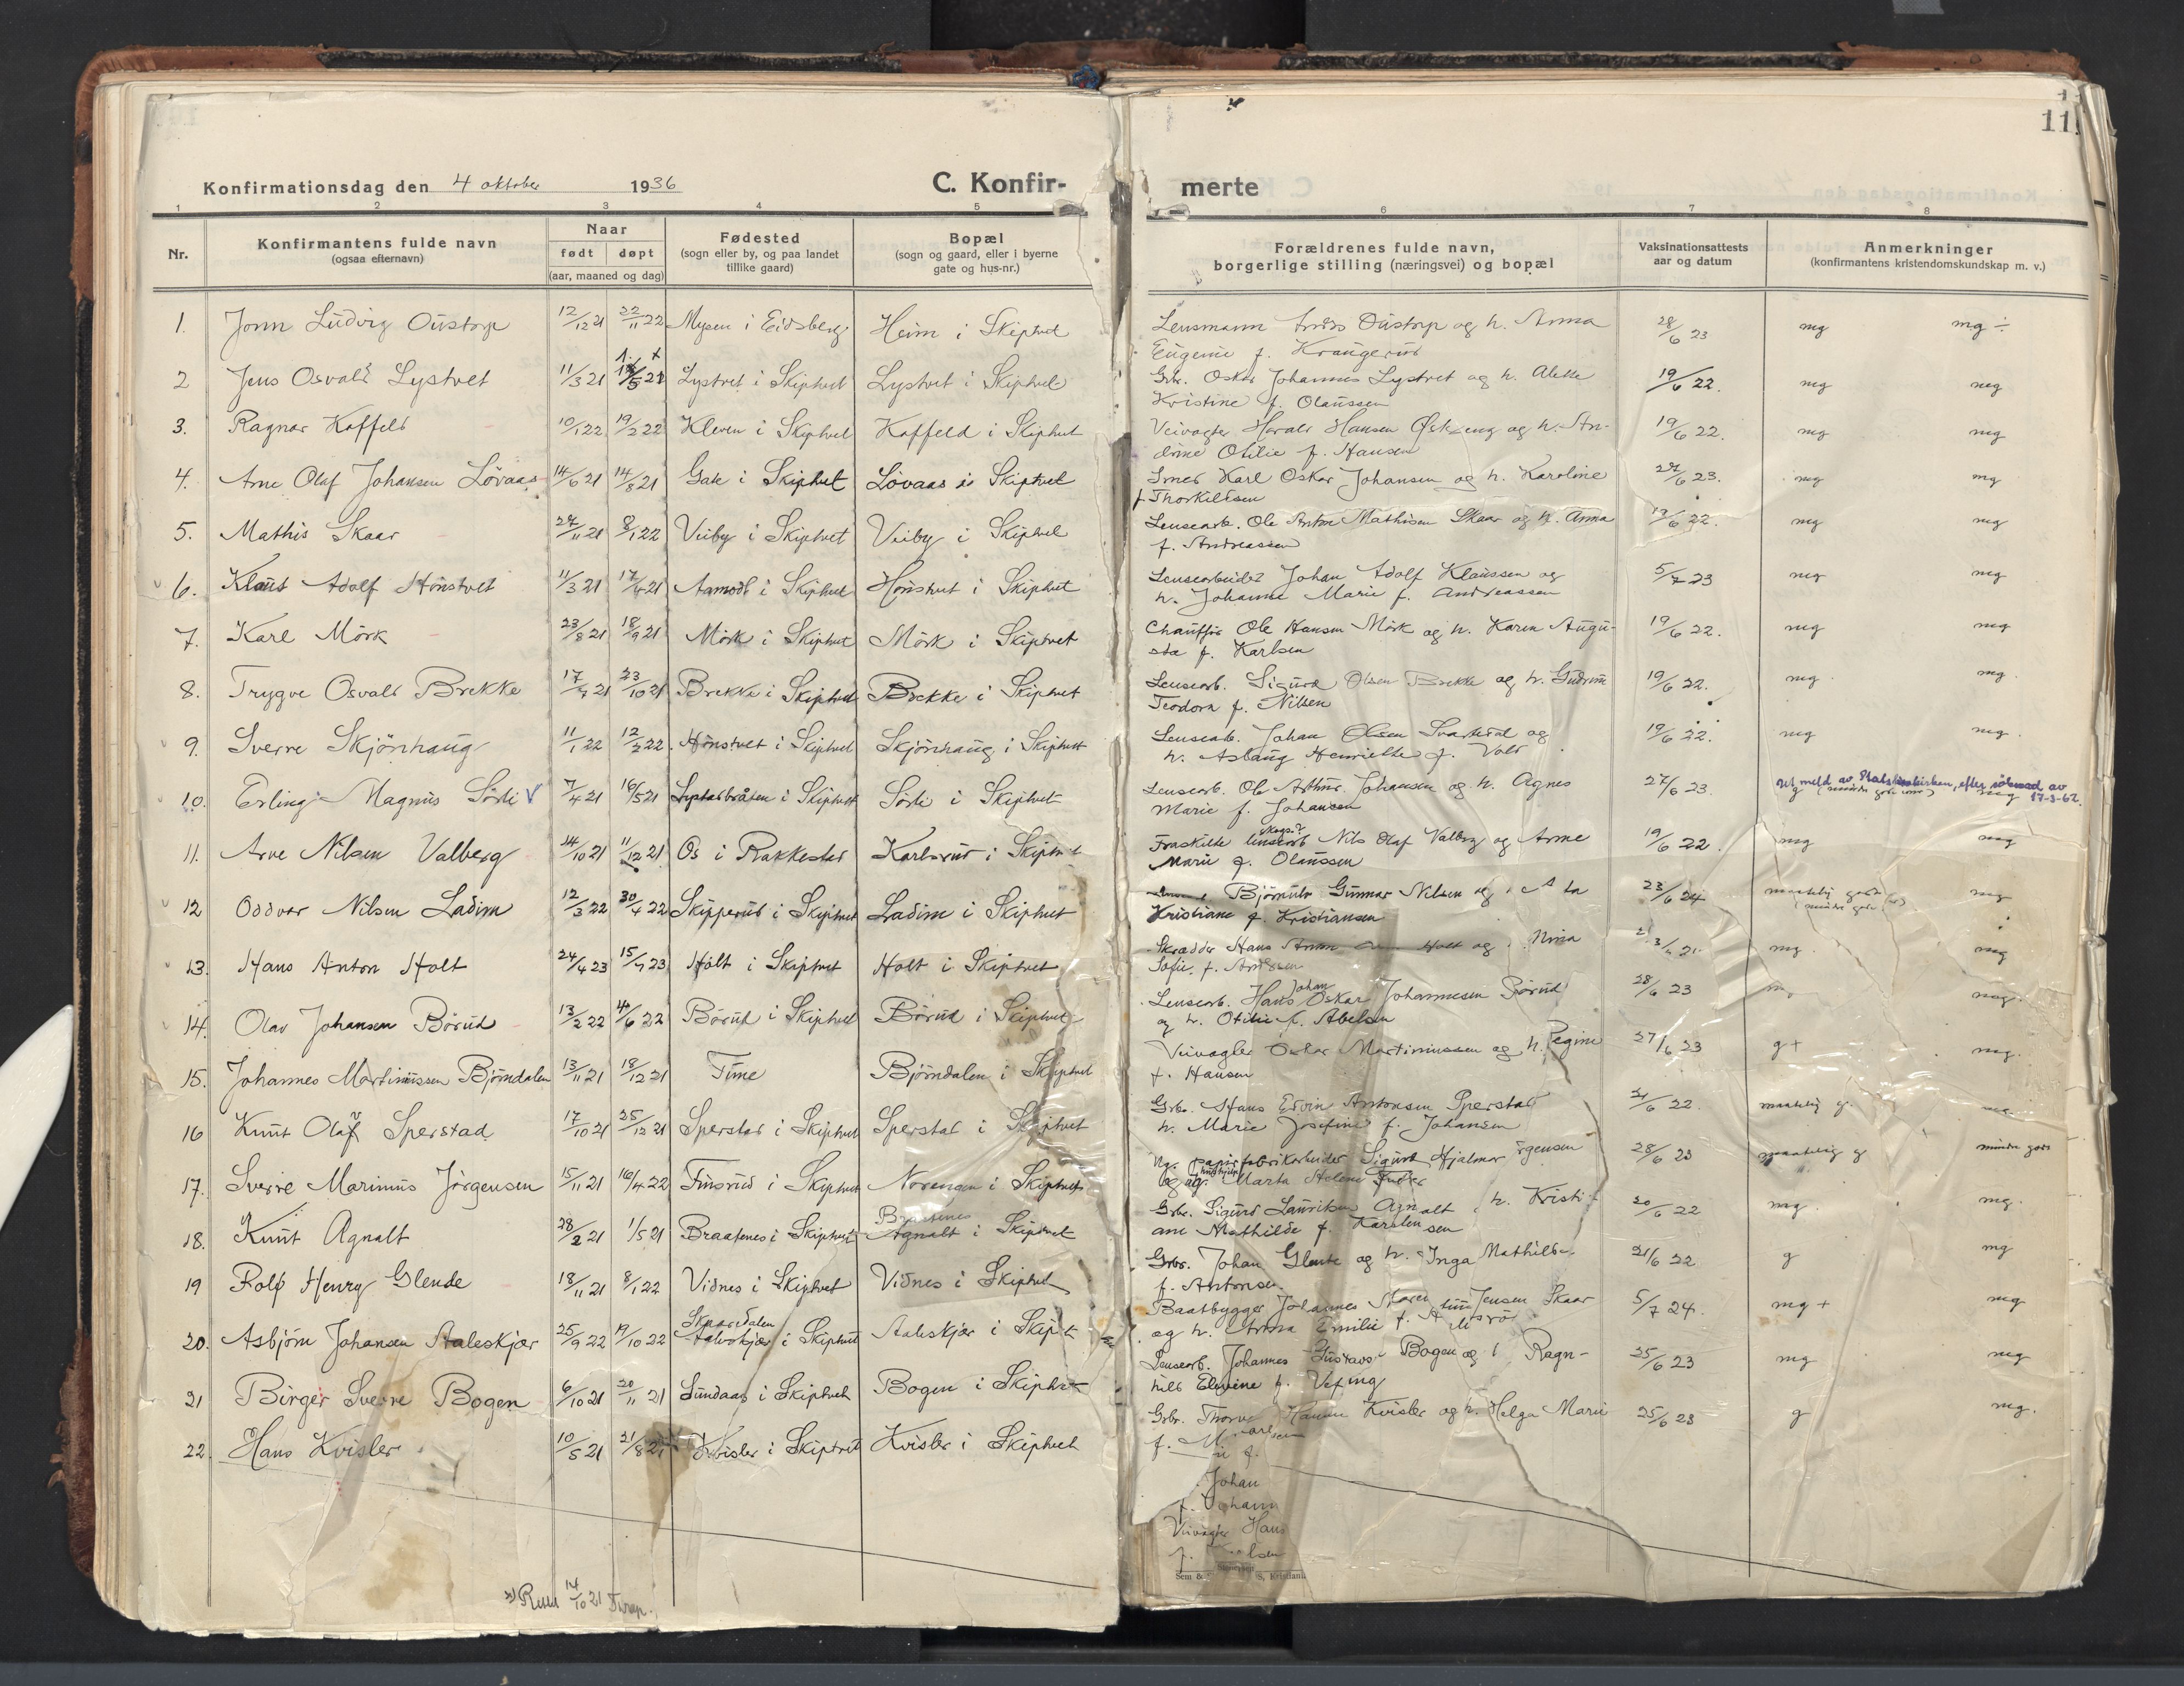 Konfirmationsdag den 4 oktober 1936 C. Konfir-
1 2 3 4 5
Nr. Konfirmantens fulde navn (ogsaa efternavn) Naar født døpt (aar, maaned og dag) Fødested (sogn eller by, og paa landet tillike gaard) Bopæl (sogn og gaard, eller i byerne gate og hus-nr.)
1. Jonn Ludvig Oustorp 12/12 21 22/11 22 Mysen i Eidsberg Heim i Skiptvet
2 Jens Osvald Lystvet 11/3 21 Lystvet i Skiptvet Lystvet i Skiptvet
3. Ragnar Koffeld 10/1 22 19/2 22 Kleven i Skiptvet Koffeld i Skiptvet
4. Arne Olaf Johansen Lövaas 14/6 21 14/8 21 Gate i Skiptvet Lövaas i Skiptvet
5. Mathis Skaar 27/11 21 8/1 22 Veiby i Skiptvet Veiby i Skiptvet
6. Klaus Adolf Hönstvet 11/3 21 17/4 21 Aamodt i Skiptvet Hönstvet i Skiptvet
7. Karl Mörk 23/8 21 18/9 21 Mörk i Skiptvet Mörk i Skiptvet
8. Trygve Osvald Brekke 17/7 21 23/10 21 Brekke i Skiptvet Brekke i Skiptvet
9. Sverre Skjönhaug 11/1 22 12/2 22 Hönstvet i Skiptvet Skjönhaug i Skiptvet
10. Erling Magnus Sörli V 7/4 21 16/5 21 Lystadbråten i Skiptvet Sörli i Skiptvet
11. Arve Nilsen Valberg 14/10 21 11/12 21 Os i Rakkestad Karlsrud i Skiptvet
12 Oddvar Nilsen Ladim 12/3 22 30/4 22 Skipperud i Skiptvet Ladim i Skiptvet
13. Hans Anton Holt 24/4 23 15/7 23 Holt i Skiptvet Holt i Skiptvet
14. Olav Johansen Börud 13/2 22 4/6 22 Börud i Skiptvet Börud i Skiptvet
15. Johannes Martinussen Björndalen 13/11 21 18/12 21 Fune Björndalen i Skiptvet
16 Knut Olaf Sperstad 17/10 21 25/12 21 Sperstad i Skiptvet Sperstad i Skiptvet
17. Sverre Marinus Jörgensen 15/11 21 16/4 22 Finsrud i Skiptvet Norengen i Skiptvet
18. Knut Agnalt 28/2 21 1/5 21 Braatenes i Skiptvet Braatenes Agnalt i Skiptvet
19 Rolf Henry Glende 18/11 21 8/1 22 Vidnes i Skiptvet Vidnes i Skiptvet
20. Asbjörn Johansen Aaleskjær 25/9 22 19/10 22 Skaarsdalen Aaleskjær i Skiptvet Aaleskjær i Skipt
21 Birger Sverre Bogen 6/10 21 20/11 21 Sundaas i Skiptvet Bogen i Skiptvet
22. Hans Kvisler 10/5 21 21/8 21 Kvisler i Skiptvet Kvisler i Skiptvet
14/10 21
11
merte
6 7 8
Forældrenes fulde navn, borgerlige stilling (næringsvei) og bopæl Vaksinationsattests aar og datum Anmerkninger (konfirmantens kristendomskundskap m. v.)
Lensmann Oustorp og h. Anna 28/6 23 mg mg ÷
Eugenie f. Kraugerud
Gbr. Oskar Johannes Lystvet og h. Alette 19/6 22. mg mg
Kristine f. Olaussen
Veivogter Harald Hansen Östeng og h. An- 19/6 22. mg mg
drine Otilie f. Hansen
Smed Karl Oskar Johansen og h. Karoline 27/6 23. mg mg
f. Thorkildsen
Lensearb. Ole Anton Mathisen Skaar og h. Anna 19/6 22. mg mg
f. Andreassen
Lensearbeider Johan Adolf Klaussen og 5/7 23 mg mg
h. Johanne Marie f. Andreassen
Chauffør Ole Hansen Mörk og h. Karen Augu- 19/6 22. mg mg
sta f. Karlsen
Lensearb. Sigurd Olsen Brekke og h. Gudrun 19/6 22. mg mg.
Teodora f. Nilsen
Lensearb. Johan Olsen Svartedal og 19/6 22. mg mg.
h. Aslaug Henriette f. Vold
Lensearb. Ole Arthur Johansen og h. Agnes 27/6 23. Utmeld av Statskirken, efter søknad av 17-3-62.
Marie f. Johansen
Fraskilte lensearb Nils Olaf Valberg og Anne 19/6 22. mg mg
Marie f. Olaussen
Gunnar Nilsen og 23/6 24 maatelig mg
Kristiane f. Kristiansen
Skrædder Hans og Nina mg. mg
Sofie f.
Lensearb. Hans Johan Oskar Johannesen Börud 28/6 23 mg.
og h. Otilie f. Abelsen
Veivogter Oskar Martinussen og h. Regine 27/6 23 g+ mg.
f. Hansen
Gbr. Hans Ervin Antonsen Sperstad 21/6 22. maatelig g.
h. Marie Josefine f. Johansen
papirfabrikarbeider Sigurd Hjalmar rgensen 28/6 23 maatelig g mindre godt
og Marta Helene
Gbr. Sigurd Lauritsen Agnalt h. Kristi- 20/6 22 mg. mg.
ane Mathilde f. Karelensen
Gbr. Johan Glende og h. Inga Mathilde 21/6 22 g mg
f. Antonsen
Baatbygger Johannes Jensen Skaar 5/7 24. mg + mg
og h. Anna Emilie f.
Lensearb. Johannes Gustavs Bogen og Ragn- 25/6 23 mg mg
hild Elevine f.
Gbr. Kvisler og h. Helga Marie 25/6 23 g mg.
f.
Johan
f. Johann
Veivogter Hans
f.
Sem &